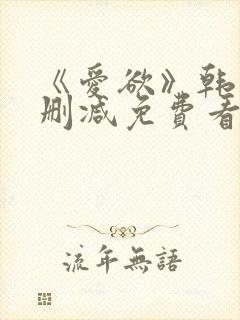 《爱欲》韩
删减免费看
流年無語